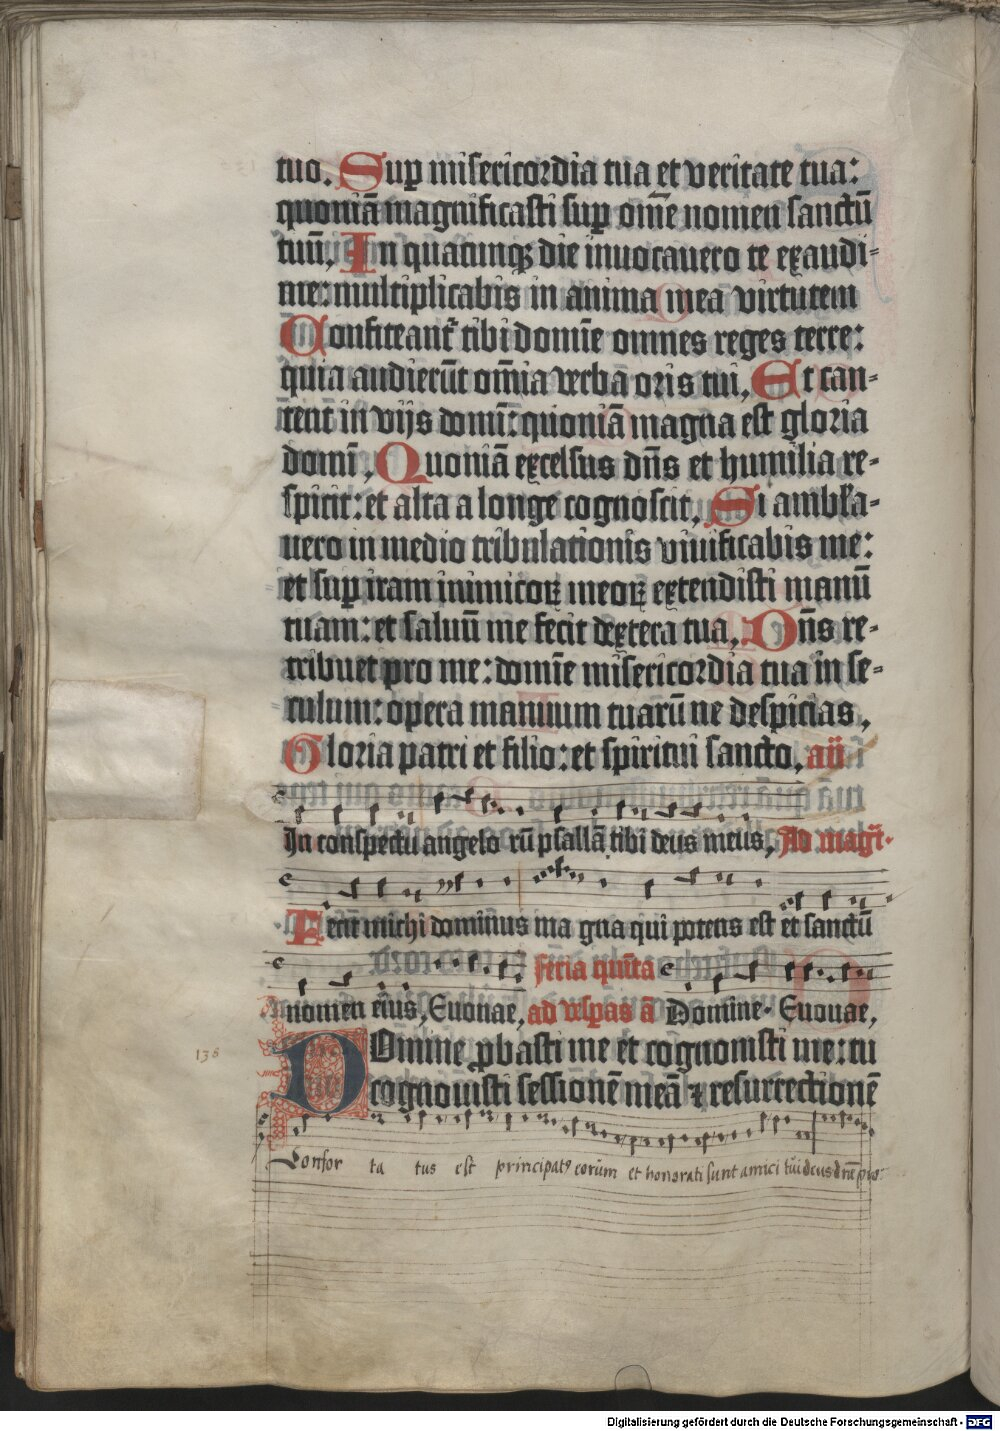 tuo. Sup misericordia tua et veritate tua:
quoniā magnificasti sup om̄e nomen sanctū
tuū, In quacunqꝫ die inuocauero te exaudi-
me: multiplicabis in anima mea virtutem
Confiteant᷑ tibi domīe omnes reges terre:
quia audierūt om̄ia verba oris tui, Et can-
tent in vijs domī: quoniā magna est gloria
domī, Quoniā excelsus dn̄s et humilia re-
spicit: et alta a longe cognoscit, Si ambl̄a-
uero in medio tribulationis viuificabis me:
et sup iram inimicoꝝ meoꝝ extendisti manū
tuam: et saluū me fecit dextera tua, Dn̄s re-
tribuet pro me: domīe misericordia tua in se-
culum: opera manuum tuarū ne despicias,
Gloria patri et filio: et spiritui sancto, an̄
In conspectu angelo rū psallā tibi deus meus, Ad magr̄.
Fecit michi dominus ma gna qui potens est et sanctū
feria quīta
nomen eius, Euouae, ad vesꝑas ā Domine. Euouae,
136
Domine ꝓbasti me et cognouisti me: tu
cognouisti sessionē meā ⁊ resurrectionē
Confor ta tus est principatꝰ eorum et honorati sunt amici tui deus
Digitalisierung gefördert durch die Deutsche Forschungsgemeinschaft - DFG